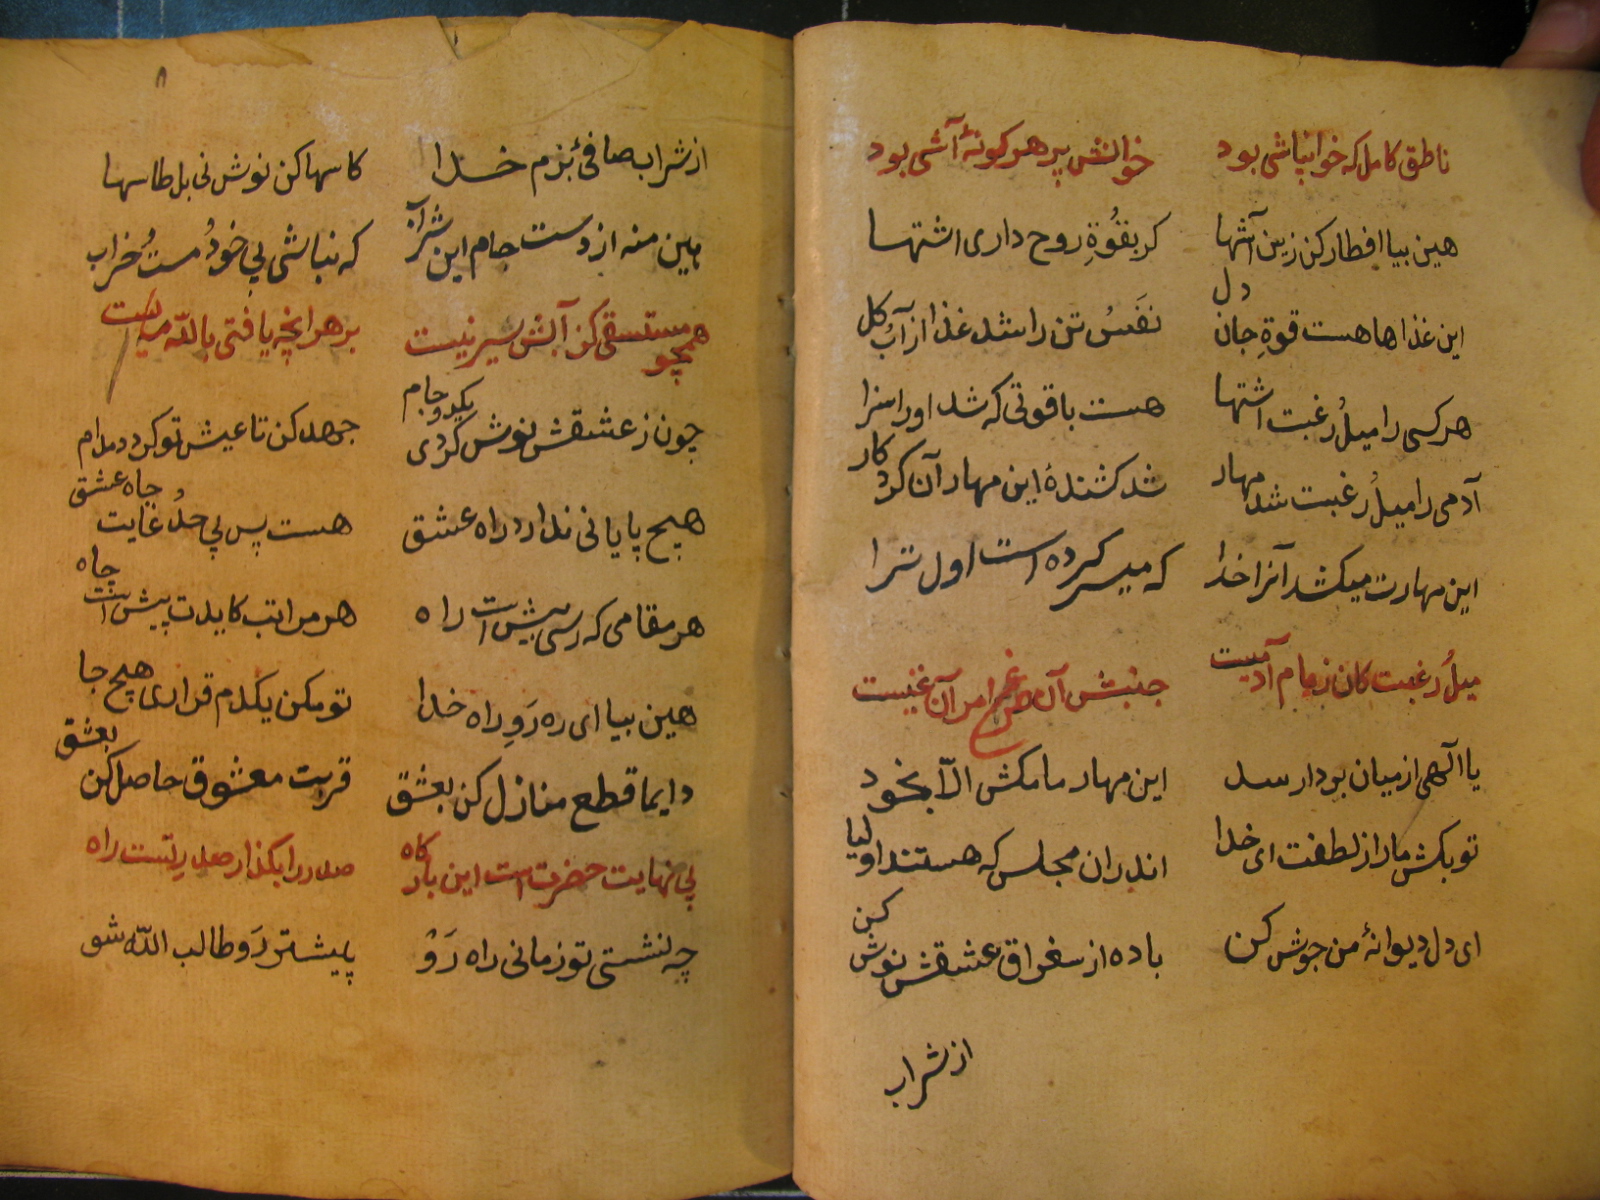 ناطق کامل که خوانباشی بود خوانش پر هر کونهٔ آشی بود
هین بیا افطار کن زین آشها کر بقوُةِ روح داری اشتها
این غذاها هست قوةِ جان و دل نفَسُ تن را شد غذا از آبُ کل
هر کسی را میلُ رغبت اشتها هست با قوتی که شد او را سزا
آدمی را میلُ رغبت شد مهار شد کشندهٔ این مهار آن کردکار
این مهارت میکشد آنرا خدا که میسر کرده است اول ترا
میلُ رغبت کان زمام آدمیست جنبش آن ز امر آن غنیست
یا الهی از میان بردار سد این مهار ما مکش الّا بخود
تو بکش ما را از لطفت ای خدا اندران مجلس که هستند اولیا
ای دل دیوانهٔ من جوش کن باده از سغراق عشقش نوش کن
از شراب
۸
از شراب صافئ بزم خدا کاسها کن نوش نی بل طاسها
هین منه از دست جام این شراب که نباشی بی خودُ مستُ خراب
همچو مستسقی کز آبش سیر نیست بر هر آنچه یافتی بالله مه ایست
چون ز عشقش نوش کردی یکدو جام جهد کن تا عیش تو کردد مدام
هیچ پایانی ندارد راه عشق هست پس بی حدُ غایت جاه عشق
هر مقامی که رسی پیش است راه هر مراتب کایدت پیش است جاه
هین بیا ای ره رَوِ راه خدا تو مکن یکدم قراری هیچ جا
دایما قطع منازل کن بعشق قربت معشوق حاصل کن بعشق
بی نهایت حضرت است این بارکاه صدر را بکذار صدر تست راه
چه نشستی تو زمانی راه رَوْ پیشتر رَو طالب اللّه شو